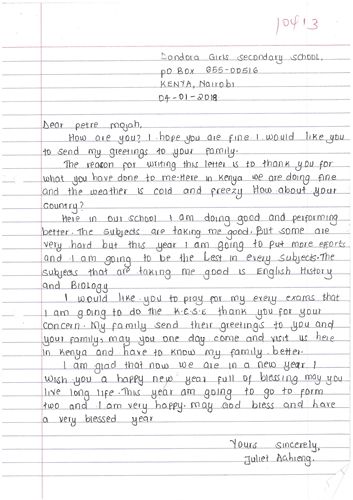 10413
Dondora Girls secondary school,
PO Box 655-00516
KENYA, Nairobi
04-01-2018
Dear petre mojah,
How are you? I hope you are fine I would like you
to send my greetings to your family.
The reason for writing this letter is to thank you for
what you have done to me. Here in Kenya we are doing fine
and the weather is cold and freezy How about your
country?
Here in our school I am doing good and performing
better. The subjects are taking me good. But some are
very hard but this year I am going to put more eforts
and I am going to be the best in every subjects. The
subjects that are taking me good is English History
and Biology
I would like you to pray for my every exams that
I am going to do the K.C.S.E thank you for your
concern. My family send their greetings to you and
your family, may you one day come and visit us here
in Kenya and have to know my family better.
I am glad that now we are in a new year I
Wish you a happy new year full of blessing may you
live long life. This year am going to go to form
two and I am very happy. may God bless and have
a very blessed year
Yours sincerely,
Juliet Achieng.